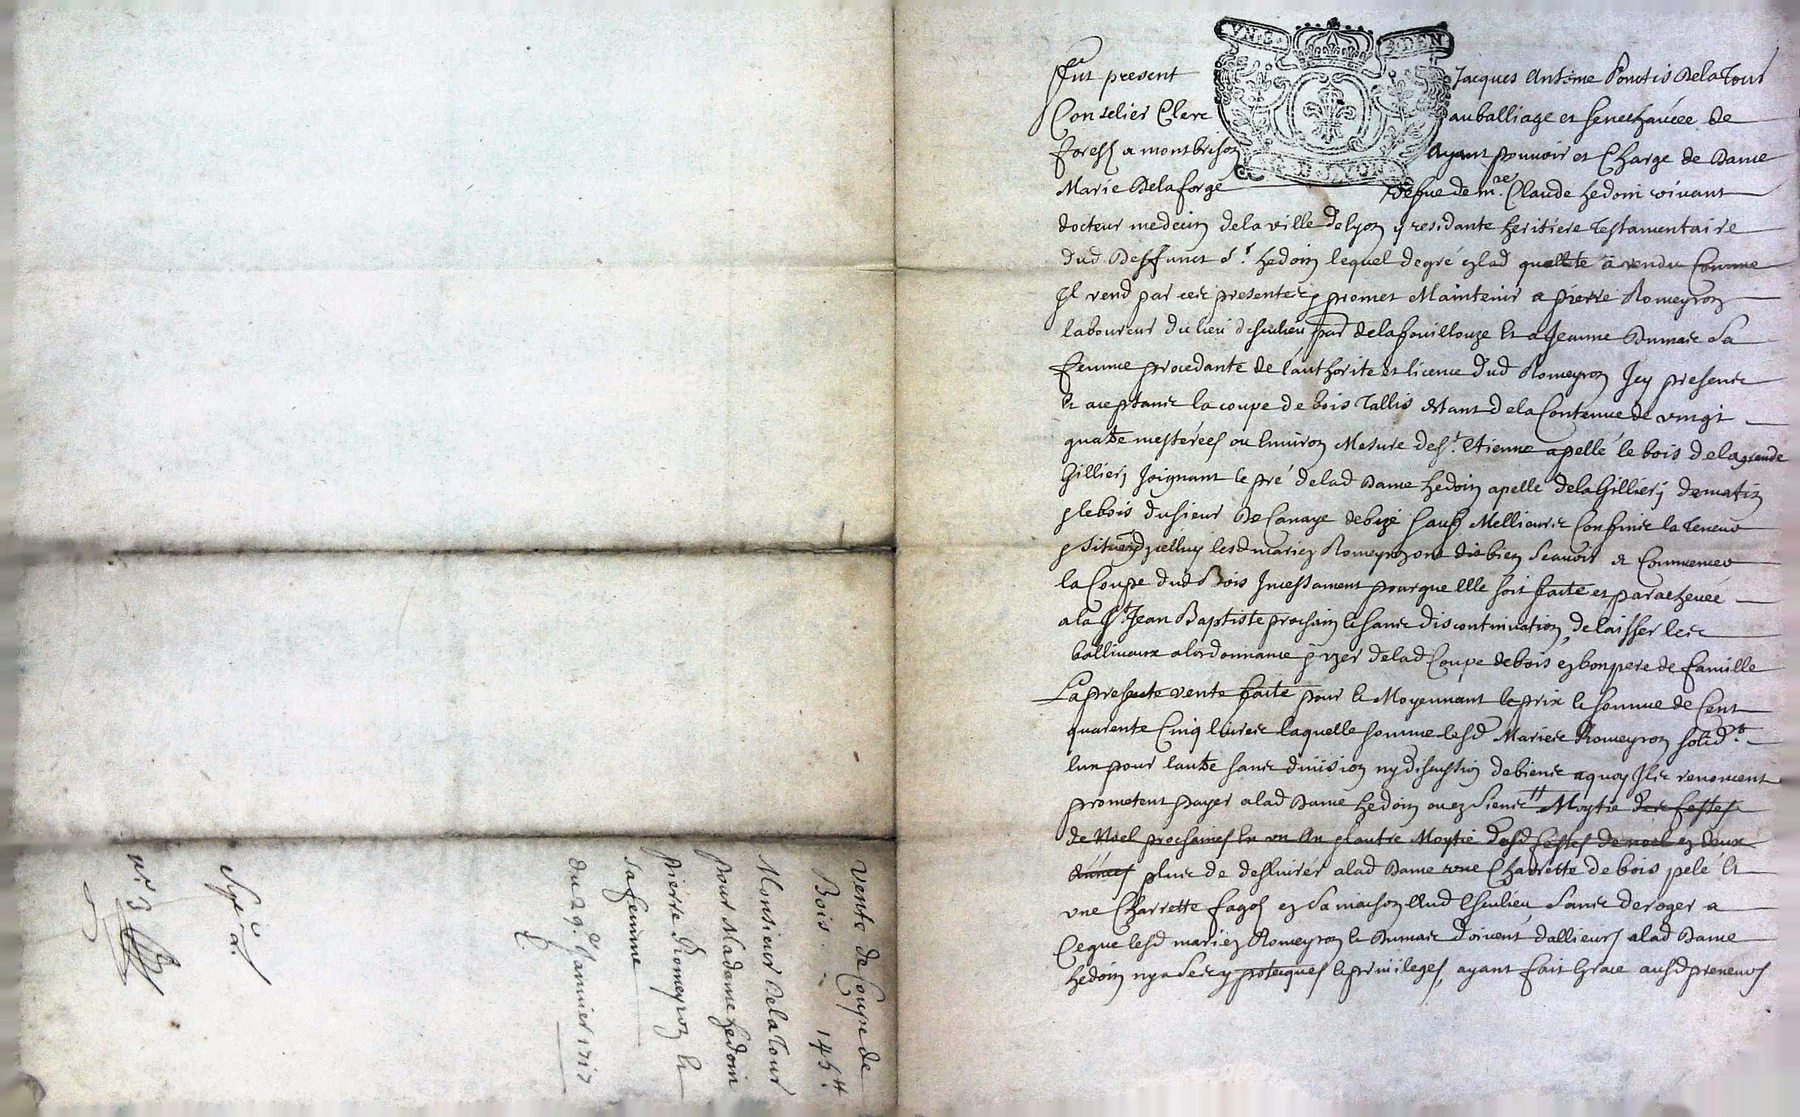 Vente de Coupe de
Bois. - 145ᵗᵗ.
Monsieur Dela Tour
pour Madame hedoin
pierre Romeyron et
sa femme
du 29ᵉ Janvier 1717
nᵒ 3
Fut present Jacques Antoine Ponctis Dela Tour
Conseiler Clerc au balliage et senechaucée de
forest a montbrison Ayant pouvoir et Charge de Dame
Marie Delaforge vefue de mʳᵉ. Claude hedoin vivant
docteur medecin dela ville de lyon y residante heritiere testamentaire
dud Deffunct sʳ. hedoin lequel de gré en lad quallité a vendu Comme
Il vend par ces presentes promet Maintenir a pierre Romeyron
laboureur du lieu desculieu par. dela fouillouze et a Jeanne Dumas Sa
femme procedante de l'authorite et licence dud Romeyron Icy presens
et aceptans la coupe de bois tallis estant dela Contenue de vingt
quatre mesterées ou Environ Mesure de Sᵗ. Etienne apellé le bois dela grande
Gilliery Joignant le pré delad Dame hedoin apellé dela Gilliery de matin
le bois du sieur De Canaye de bize sauf Melliours Confins la teneur
situaõn d'icelluy lesd mariez Romeyron ont dit bien scavoir & Commencer
la Coupe dud Bois Incessament pour que Elle soit faite et parachevée
a la Sᵗ Jean Baptiste prochain et sans discontinuation, de laisser les
balliveaux a lordonnance uzer delad Coupe de bois en bon pere de famille
La presente vente faite pour et Moyennant le prix et somme de Cent
quarente Cinq livres laquelle somme lesd Mariez Romeyron solidᵗ.
lun pour lautre sans division ny discussion de biens a quoy Ils renoncent
prometent payer a lad Dame hedoin ou ez siens Moytié des festes
de Noel prochaines en un An lautre Moytié desd festes de noel en deux
Années plus de deslivrer a lad Dame une Charrette de bois pelé et
une Charrette fagos en sa maison Aud Esculieu sans deroger a
Ce que lesd mariez Romeyron et Dumas doivent dallieurs a lad Dame
hedoin ny a ses ypoteques et privileges, ayant fait Grace ausd preneurs